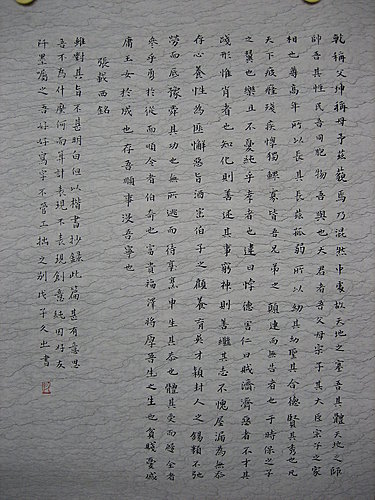 乾稱父坤稱母予茲藐焉乃混然中處故天地之塞吾其體天地之
帥吾其性民吾同胞物吾與也大君者吾父母宗子其大臣宗子之家
相也尊高年所以長其長慈孤弱所以幼其幼聖其合德賢其秀也凡
天下疲癃殘疾惸獨鰥寡皆吾兄弟之顛連而無告者也于時保之子
之翼也樂且不憂純乎孝者也違曰悖德害仁曰賊濟惡者不才其
踐形惟肖者也知化則善述其事窮神則善繼其志不愧屋漏為無忝
存心養性為匪懈惡旨酒崇伯子之顧養育英才穎封人之錫類不弛
勞而底豫舜其功也無所逃而待烹申生其恭也體其受而歸全者
參乎勇於從而順令者伯奇也富貴福澤將厚吾生之生也貧賤憂戚
庸玉女於成也存吾順事沒吾寧也
張載西銘
雖對其旨不甚明白但以楷書抄錄此篇甚有意思
吾不為什麼何而年計表現不表現創意純因好友
阡墨囑之吾好好寫字不管工拙之別戊子久出書